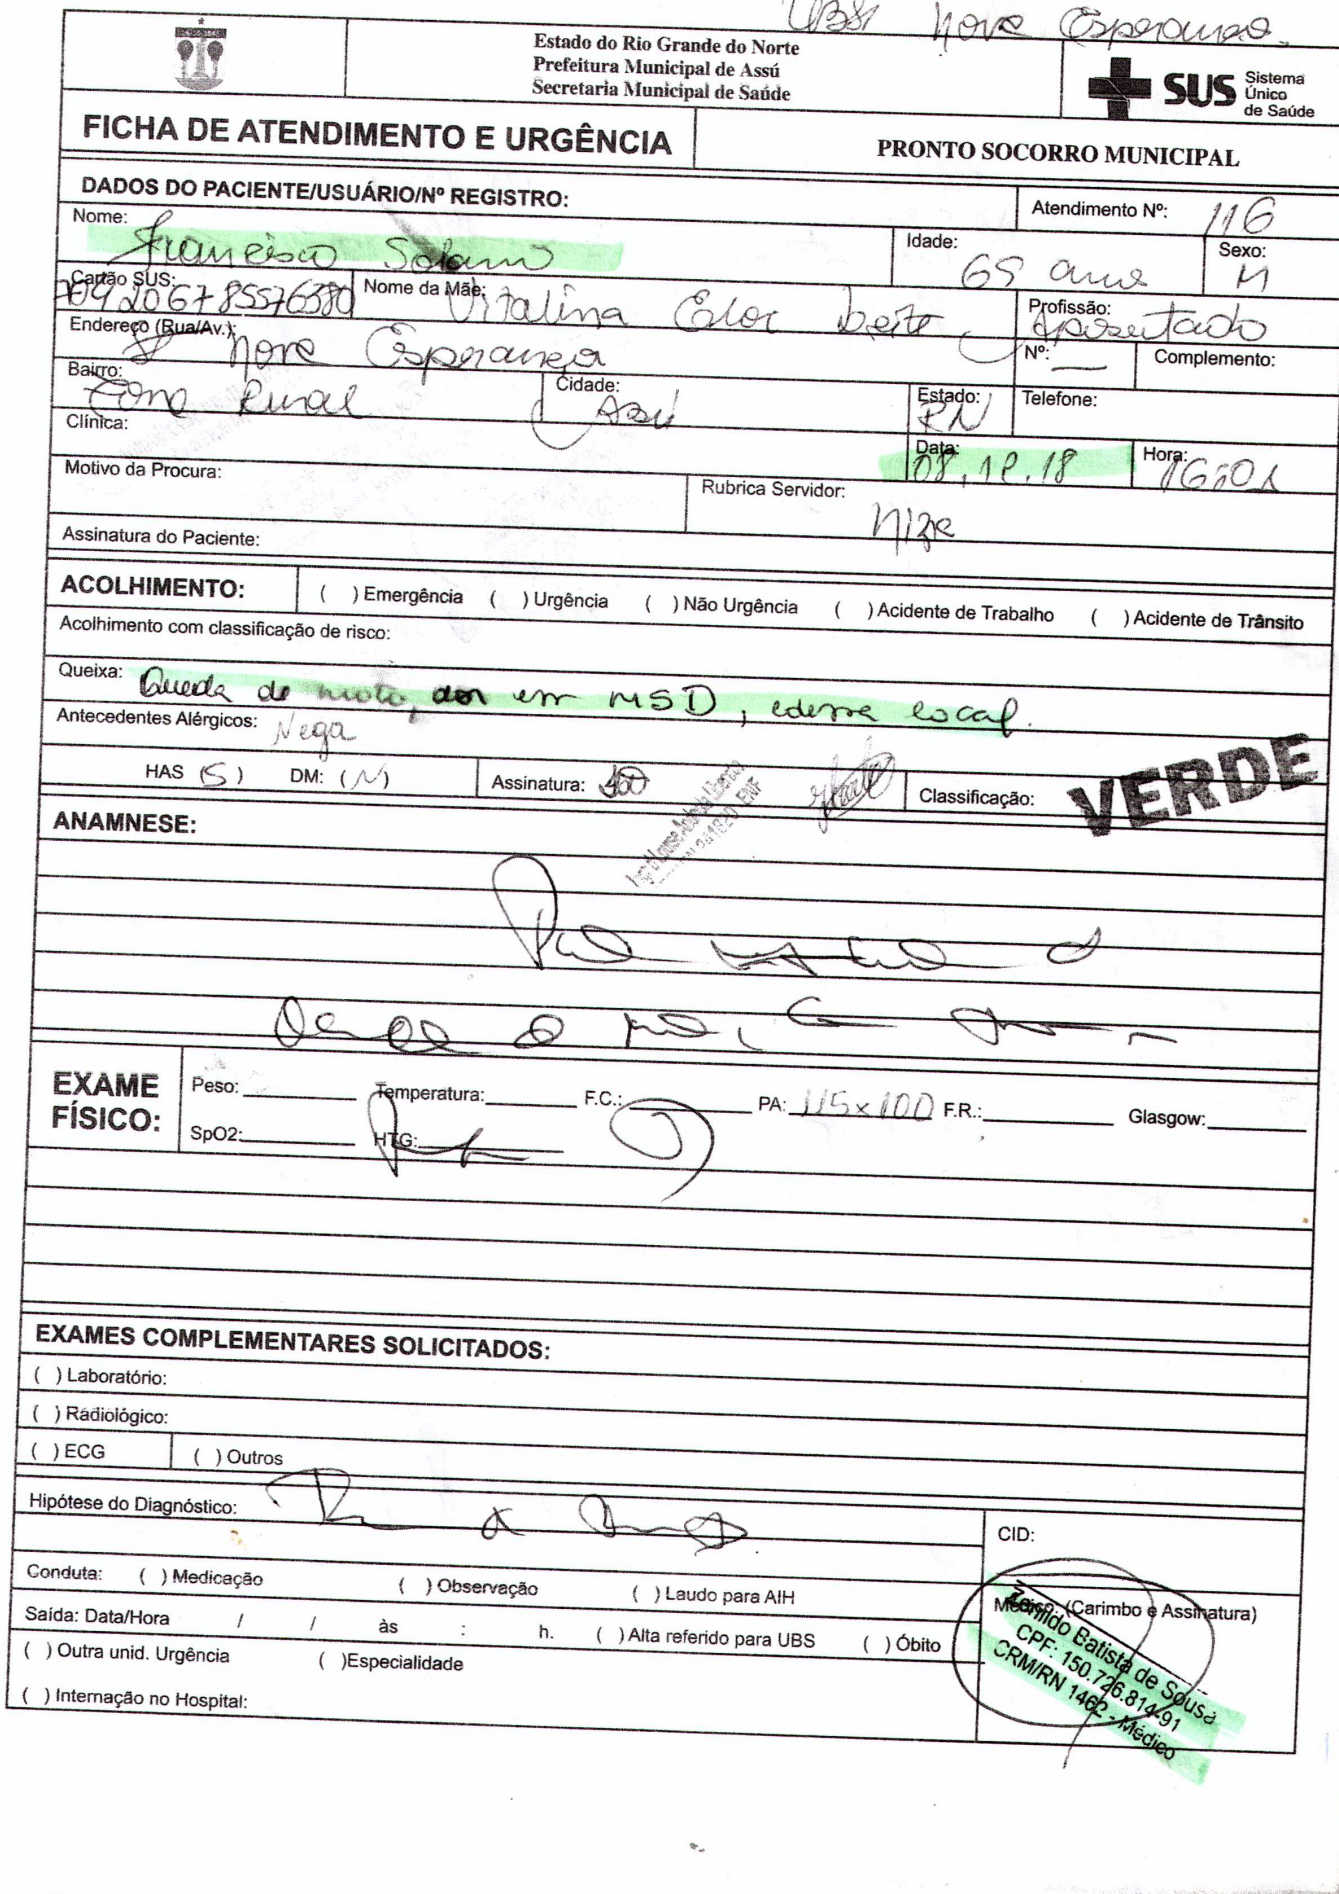 UBSF Nova Esperança.
Estado do Rio Grande do Norte
Prefeitura Municipal de Assú
Secretaria Municipal de Saúde
SUS Sistema Único de Saúde
FICHA DE ATENDIMENTO E URGÊNCIA
PRONTO SOCORRO MUNICIPAL
DADOS DO PACIENTE/USUÁRIO/Nº REGISTRO:
Atendimento Nº: 116
Nome: Francisco Solano
Idade: 69 anos
Sexo: M
Cartão SUS: 709206785576380
Nome da Mãe: Vitalina Eloi Leite
Profissão: Aposentado
Endereço (Rua/Av.): Nova Esperança
Nº: __
Complemento:
Bairro: Zona Rural
Cidade: Assú
Estado: RN
Telefone:
Clínica:
Data: 08.12.18
Hora: 16:01
Motivo da Procura:
Rubrica Servidor: Nize
Assinatura do Paciente:
ACOLHIMENTO: ( ) Emergência ( ) Urgência ( ) Não Urgência ( ) Acidente de Trabalho ( ) Acidente de Trânsito
Acolhimento com classificação de risco:
Queixa: Queda de moto, dor em MSD, edema local.
Antecedentes Alérgicos: Nega
HAS (S) DM: (N) Assinatura: Classificação: VERDE
ANAMNESE:
EXAME FÍSICO:
Peso: Temperatura: F.C.: PA: 115x100 F.R.: Glasgow:
SpO2: HTG:
EXAMES COMPLEMENTARES SOLICITADOS:
( ) Laboratório:
( ) Radiológico:
( ) ECG ( ) Outros
Hipótese do Diagnóstico:
CID:
Conduta: ( ) Medicação ( ) Observação ( ) Laudo para AIH
Saída: Data/Hora / / às : h. ( ) Alta referido para UBS ( ) Óbito
( ) Outra unid. Urgência ( )Especialidade
( ) Internação no Hospital:
Médico: (Carimbo e Assinatura)
Batista de Sousa
CPF: 150.726.814-91
CRM/RN 1462 - Médico